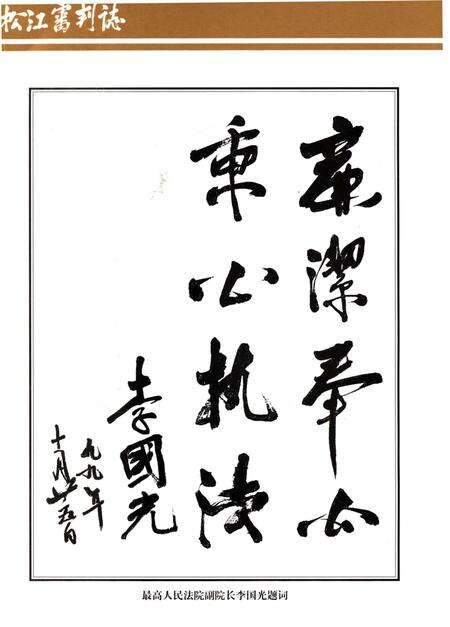 松江審判誌
廉潔奉公
秉公执法
李國光
九九年
十月廿五日
最高人民法院副院长李国光题词